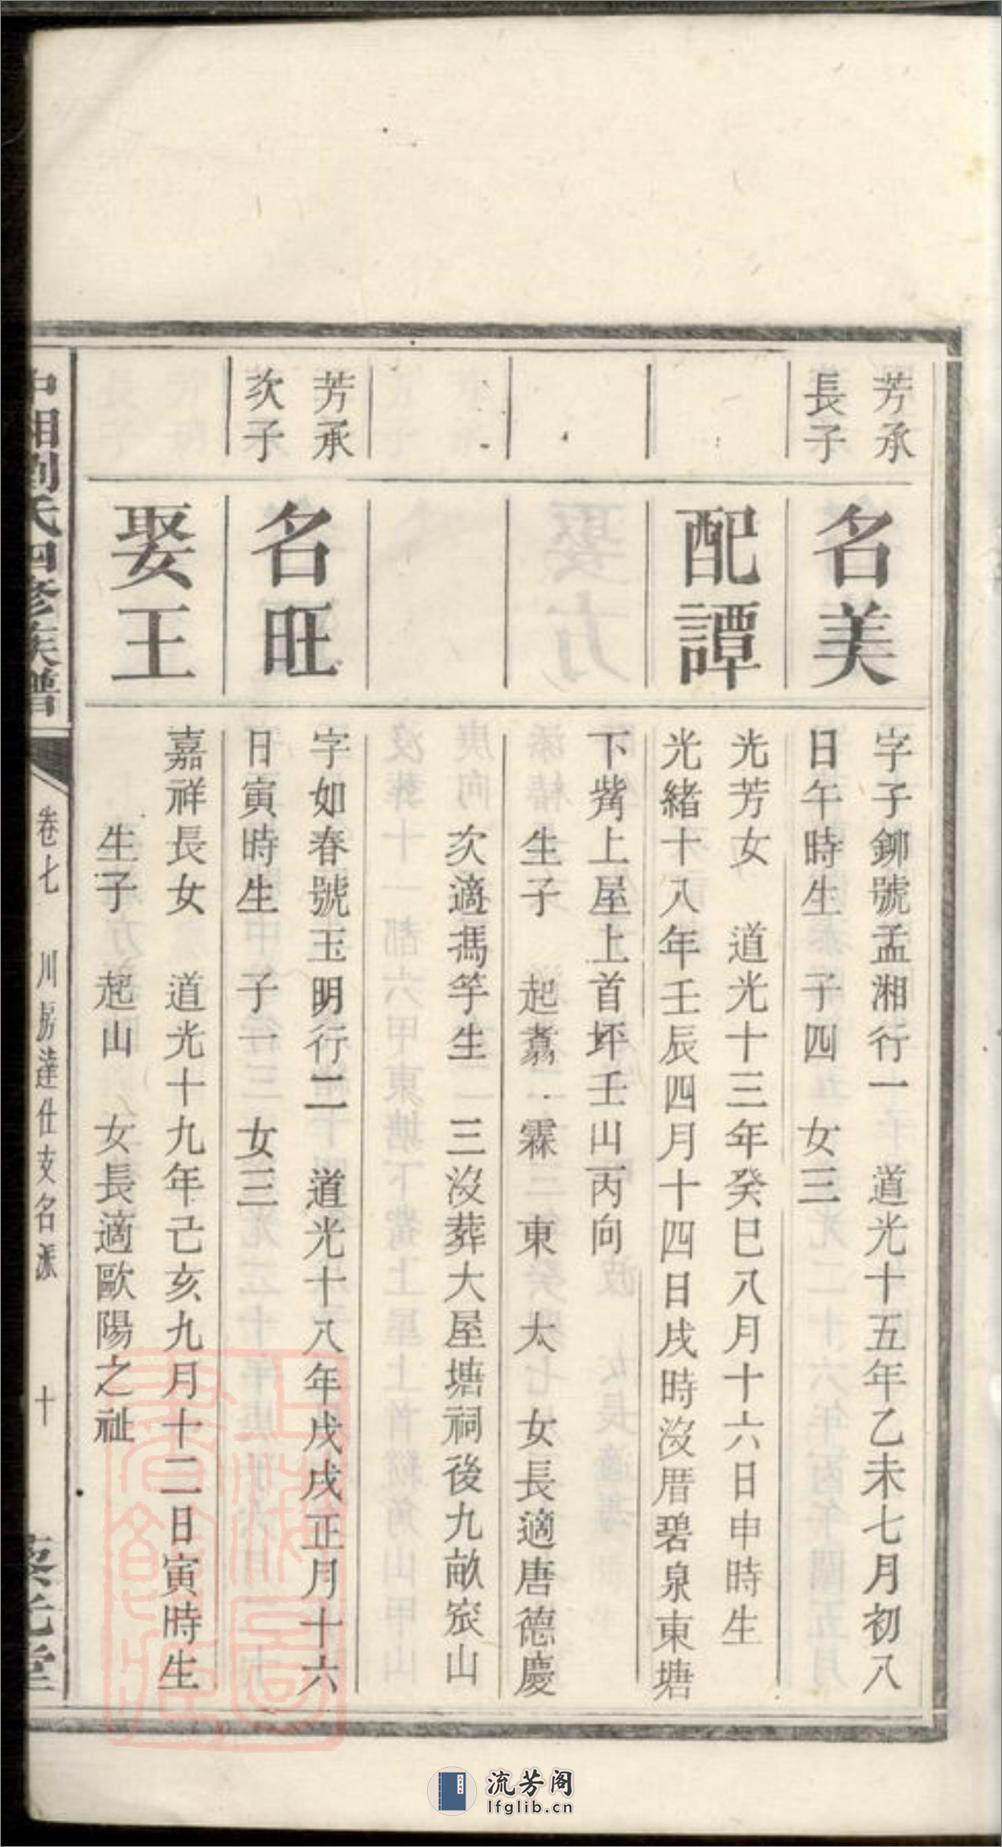 芳承
長子
名美
字子鉚號孟湘行一 道光十五年乙未七月初八
日午時生 子四 女三
配譚
光芳女 道光十三年癸巳八月十六日申時生
光緒十八年壬辰四月十四日戌時沒厝碧泉東塘
下觜上屋上首坪壬山丙向
生子 起翥 霖 東 大 女長適唐德慶
次適馮竽生 三沒葬大屋塘祠後九畝㝛山
芳承
次子
名旺
字如春號玉明行二 道光十八年戊戌正月十六
日寅時生 子一 女三
娶王
嘉祥長女 道光十九年己亥九月十二日寅時生
生子 起山 女長適歐陽之祉
中湘劉氏四修族譜
卷七 川房達仕支名派 十
流芳阁
lfglib.cn